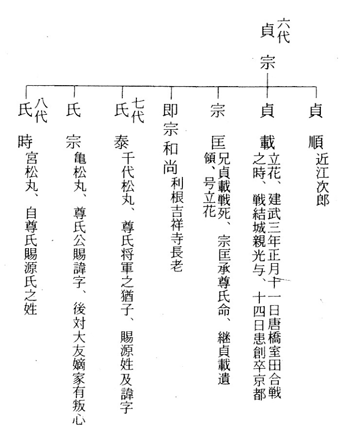 六代
貞宗
貞順
近江次郎
貞載
立花、建武三年正月十一日唐橋室田合戦
之時、戦結城親光与、十四日患創卒京都
宗匡
兄貞載戦死、宗匡承尊氏命、継貞載遺
領、号立花
即宗和尚
利根吉祥寺長老
七代
氏泰
千代松丸、尊氏将軍之猶子、賜源姓及諱字
氏宗
亀松丸、尊氏公賜諱字、後対大友嫡家有叛心
八代
氏時
宮松丸、自尊氏賜源氏之姓